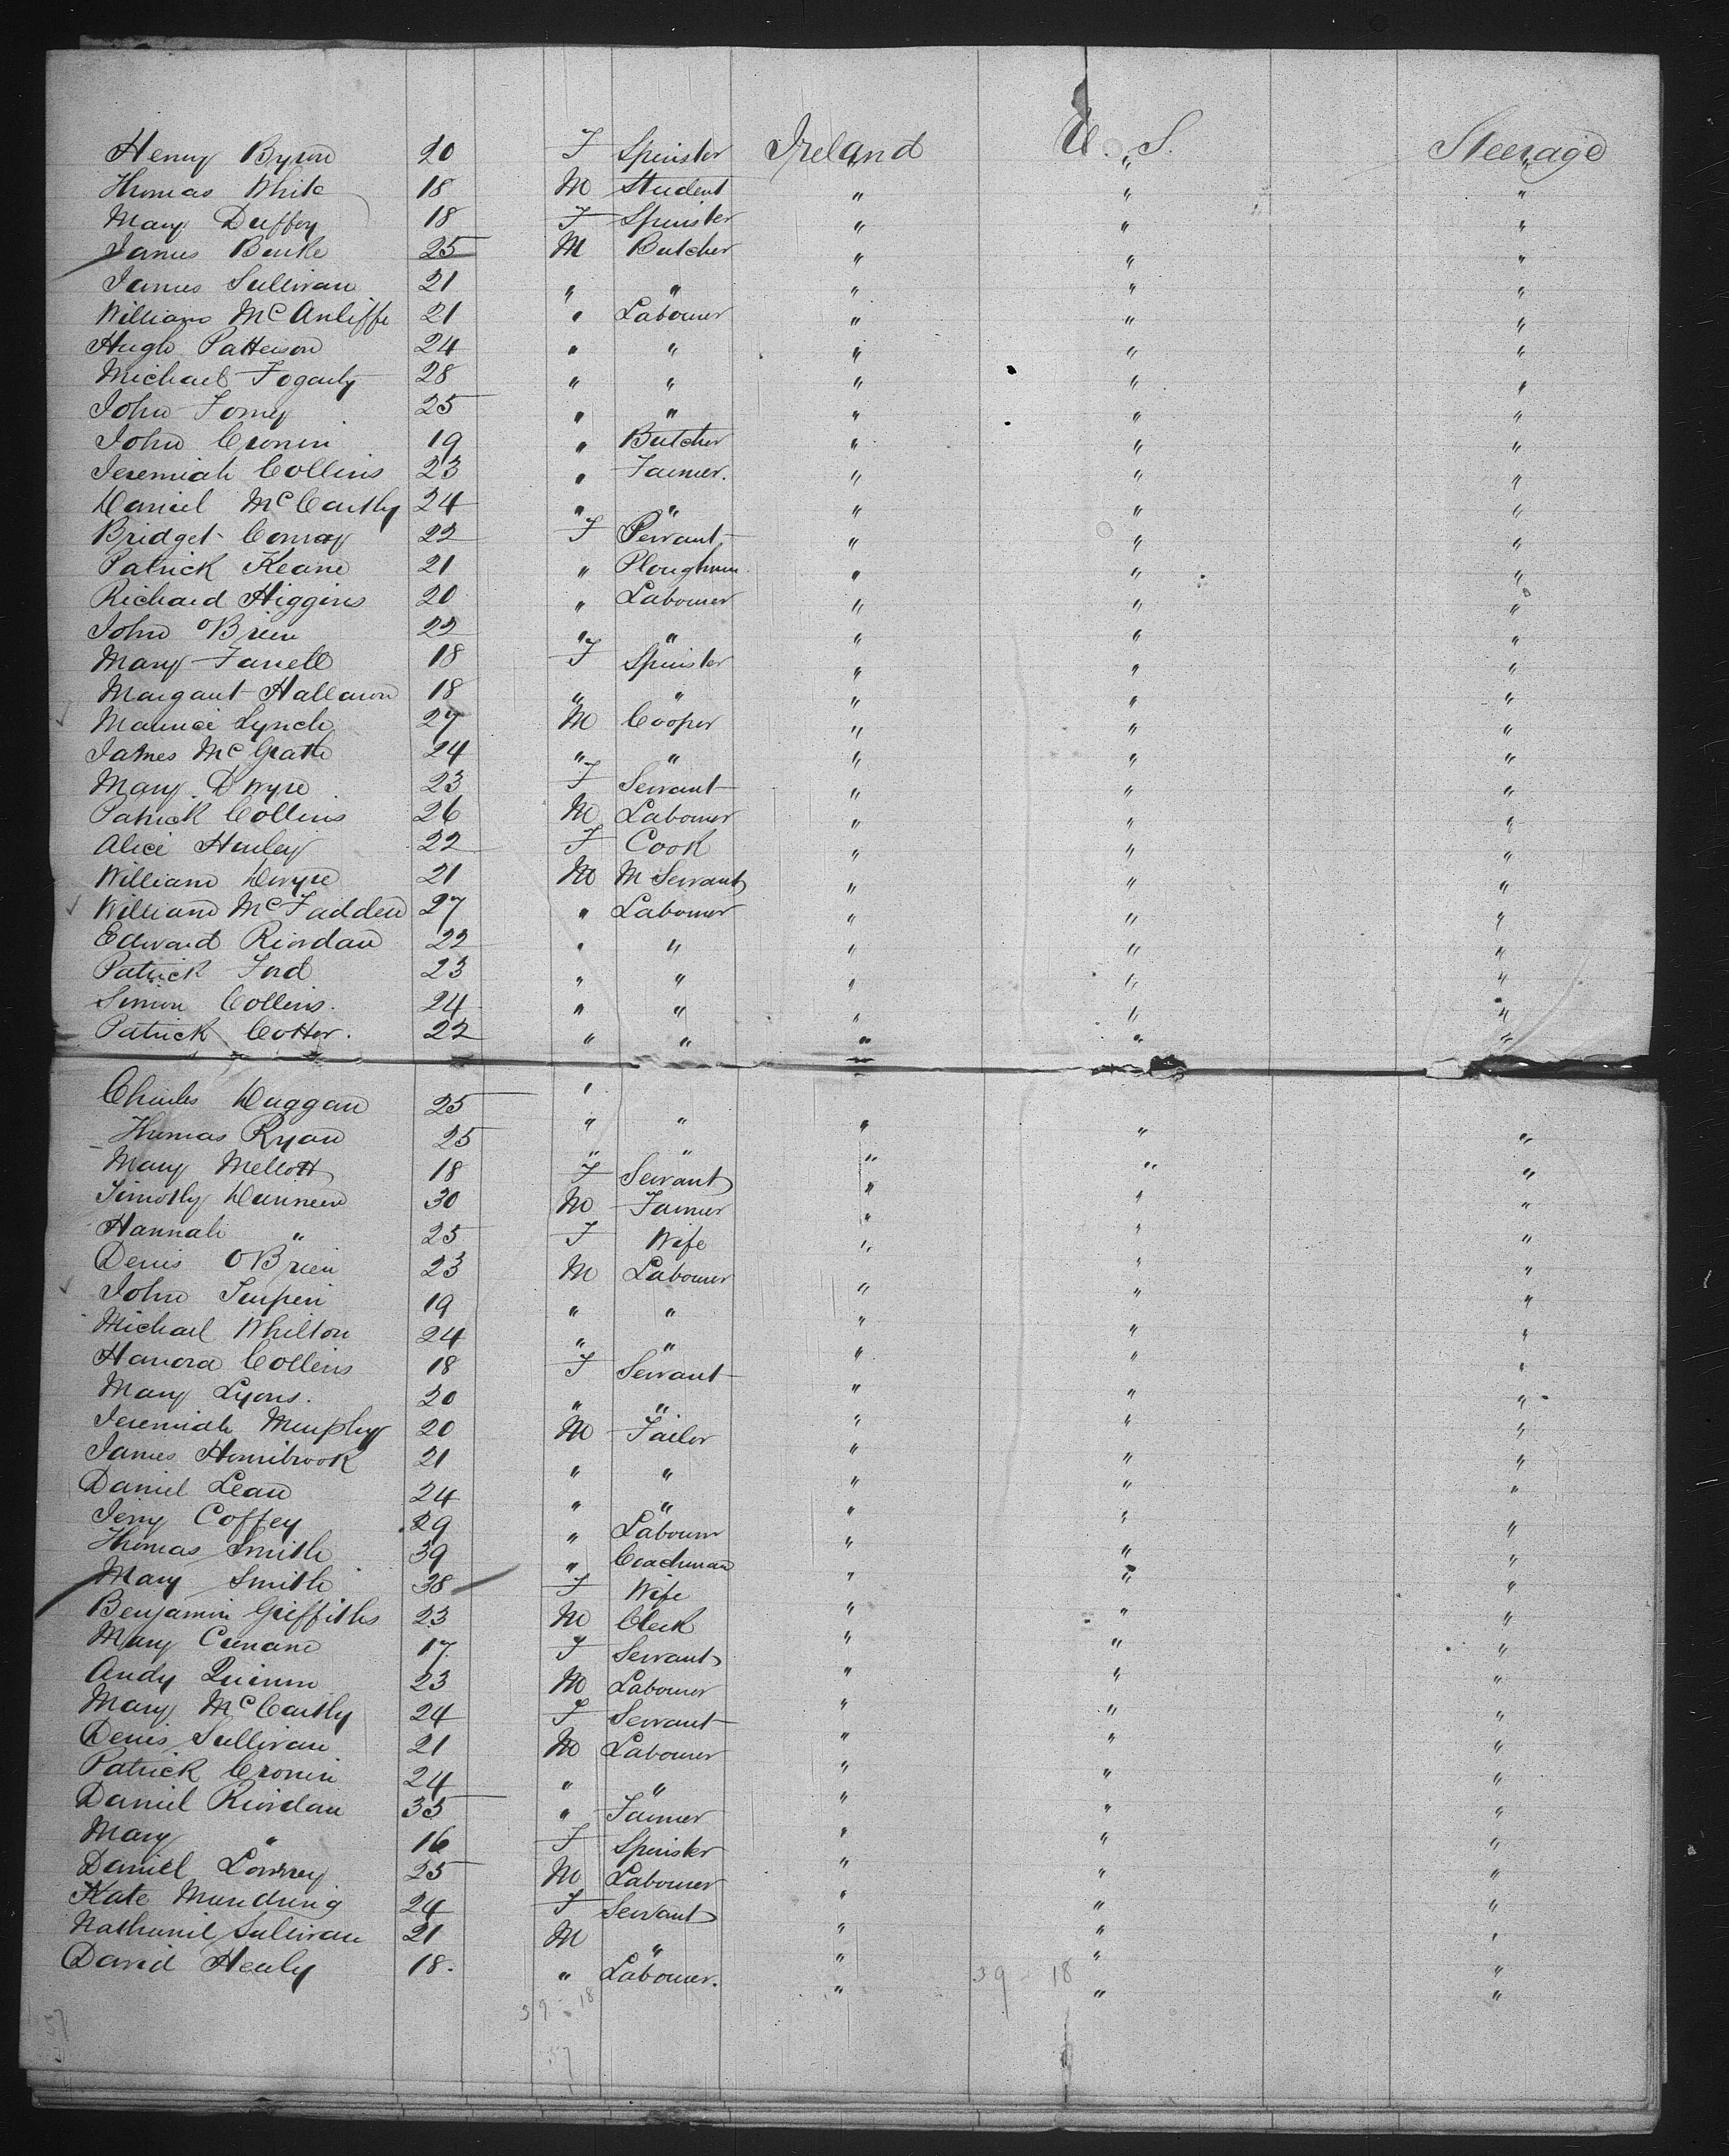 Henry Byrne 20 F Spinster Ireland U. S. Steerage
Thomas White 18 M Student " " "
Mary Duffy 18 F Spinster " " "
James Burke 25 M Butcher " " "
James Sullivan 21 " " " " "
William McAuliffe 21 " Labourer " " "
Hugh Patterson 24 " " " " "
Michael Fogarty 28 " " " " "
John 25 " " " " "
John Cronin 19 " Butcher " " "
Jeremiah Collins 23 " Farmer. " " "
Daniel McCarthy 24 " " " " "
Bridget Conway 22 F Servant " " "
Patrick Keane 21 " Ploughman " " "
Richard Higgins 20 " Labourer " " "
John OBrien 22 " " " " "
Mary Farrell 18 F Spinster " " "
Margaret Halleron 18 " " " " "
Maurice Lynch 27 M Cooper " " "
James McGrath 24 " " " " "
Mary Dwyre 23 F Servant " " "
Patrick Collins 26 M Labourer " " "
Alice Henley 22 F Cook " " "
William Dwyre 21 M M Servant " " "
William McFadden 27 " Labourer " " "
Edward Riordan 22 " " " " "
Patrick Ford 23 " " " " "
Simon Collins. 24 " " " " "
Patrick Cotter. 22 " " " " "
Charles Duggan 25 " " " " "
Thomas Ryan 25 " " " " "
Mary Mellott 18 F Servant " " "
Timothy Dunneen 30 M Farmer " " "
Hannah " 25 F Wife " " "
Denis OBrien 23 M Labourer " " "
John 19 " " " " "
Michael Whilton 24 " " " " "
Hanora Collins 18 F Servant " " "
Mary Lyons. 20 " " " " "
Jeremiah Murphy 20 M Tailor " " "
James Hornibrook 21 " " " " "
Daniel Lean 24 " " " " "
Jerry Coffey 29 " Labourer " " "
Thomas Smith 39 " Coachman " " "
Mary Smith 38 F Wife " " "
Benjamin Griffiths 23 M Clerk " " "
Mary Cunane 17 F Servant " " "
Andy Quinn 23 M Labourer " " "
Mary McCarthy 24 F Servant " " "
Denis Sullivan 21 M Labourer " " "
Patrick Cronin 24 " " " " "
Daniel Riordan 35 " Farmer " " "
Mary " 16 F Spinster " " "
Daniel Lowney 25 M Labourer " " "
Kate 24 F Servant " " "
Nathaniel Sullivan 21 M " " " "
David Healy 18. " Labourer. " " "
39 - 18 39 - 18
57 57